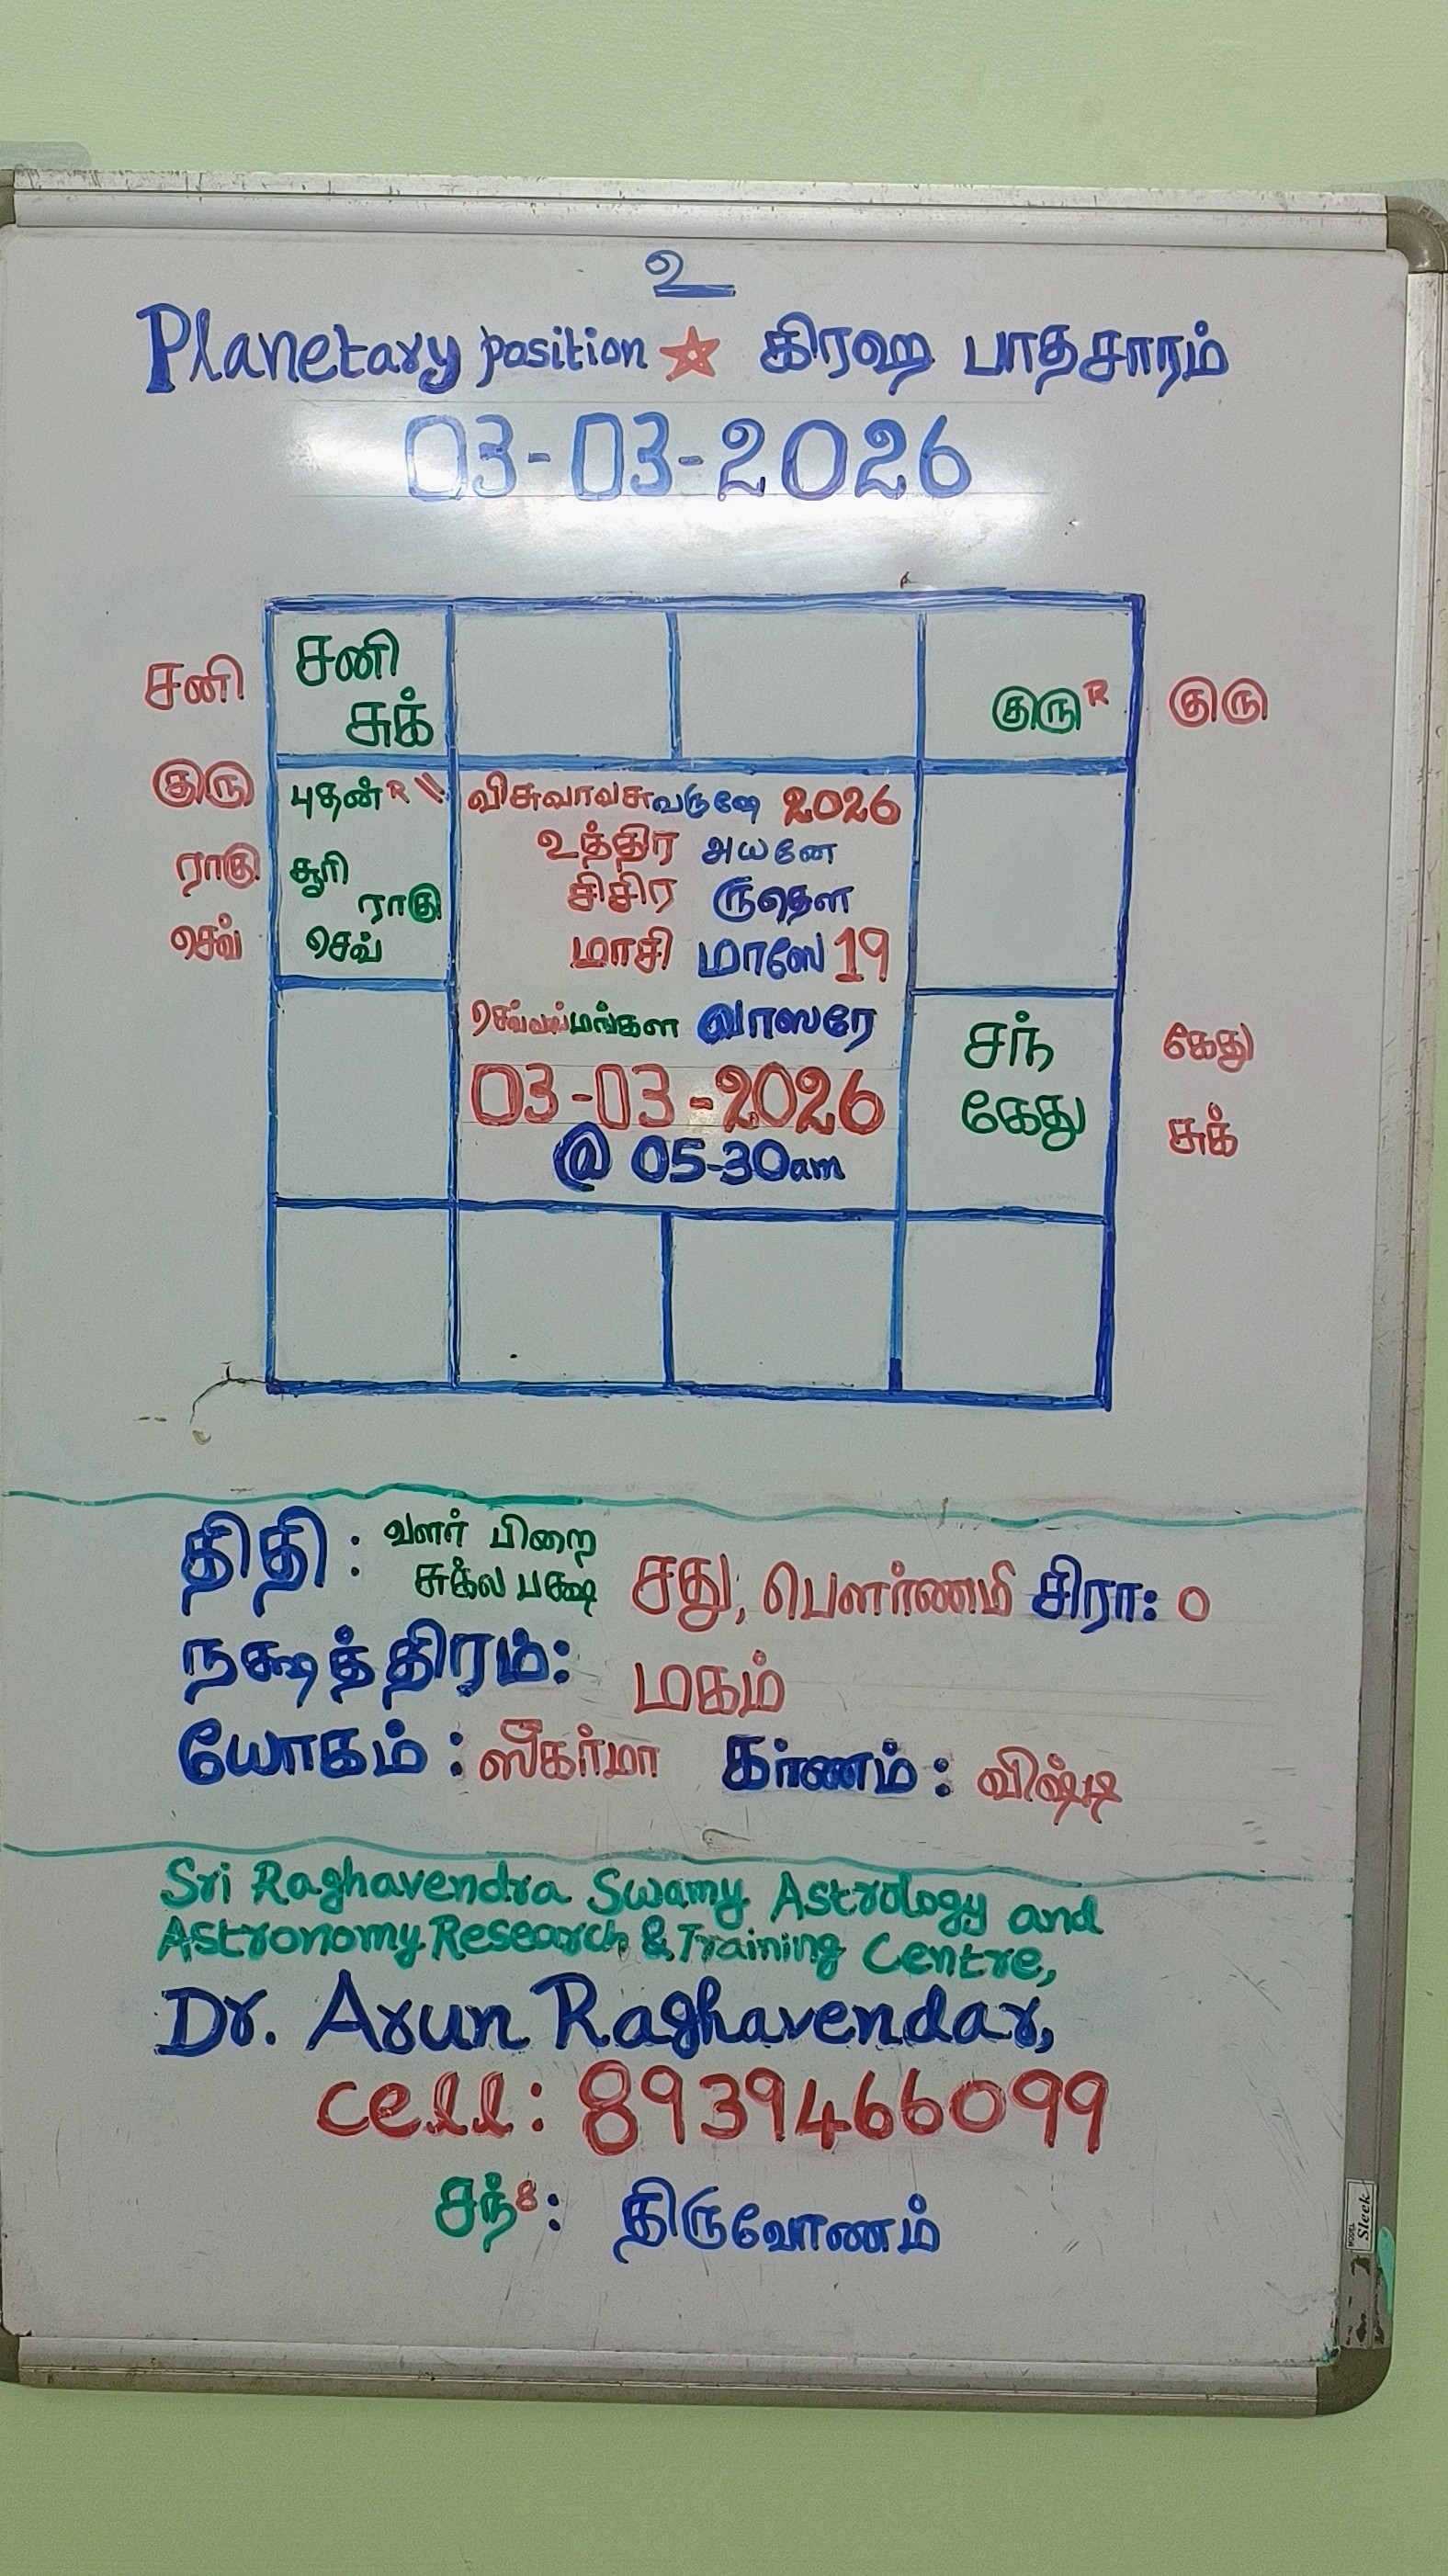 உ
Planetary position ★ கிரஹ பாதசாரம்
03-03-2026
சனி
சனி
சுக்
குரு R
குரு
குரு
புதன் R \\
ராகு
சூரி
ராகு
செவ்
செவ்
விசுவாவசுவருஷே 2026
உத்திர அயனே
சிசிர ருதௌ
மாசி மாஸே 19
செவ்வாய்மங்கள வாஸரே
03-03-2026
@ 05-30am
சந்
கேது
கேது
சுக்
திதி : வளர் பிறை
சுக்ல பக்ஷ சது, பௌர்ணமி சிரா: 0
நக்ஷத்திரம்: மகம்
யோகம் : ஸீகர்மா கர்ணம் : விஷ்டி
Sri Raghavendra Swamy Astrology and
Astronomy Research & Training Centre,
Dr. Arun Raghavendar,
cell: 8939466099
சந் 8 : திருவோணம்
Sleek